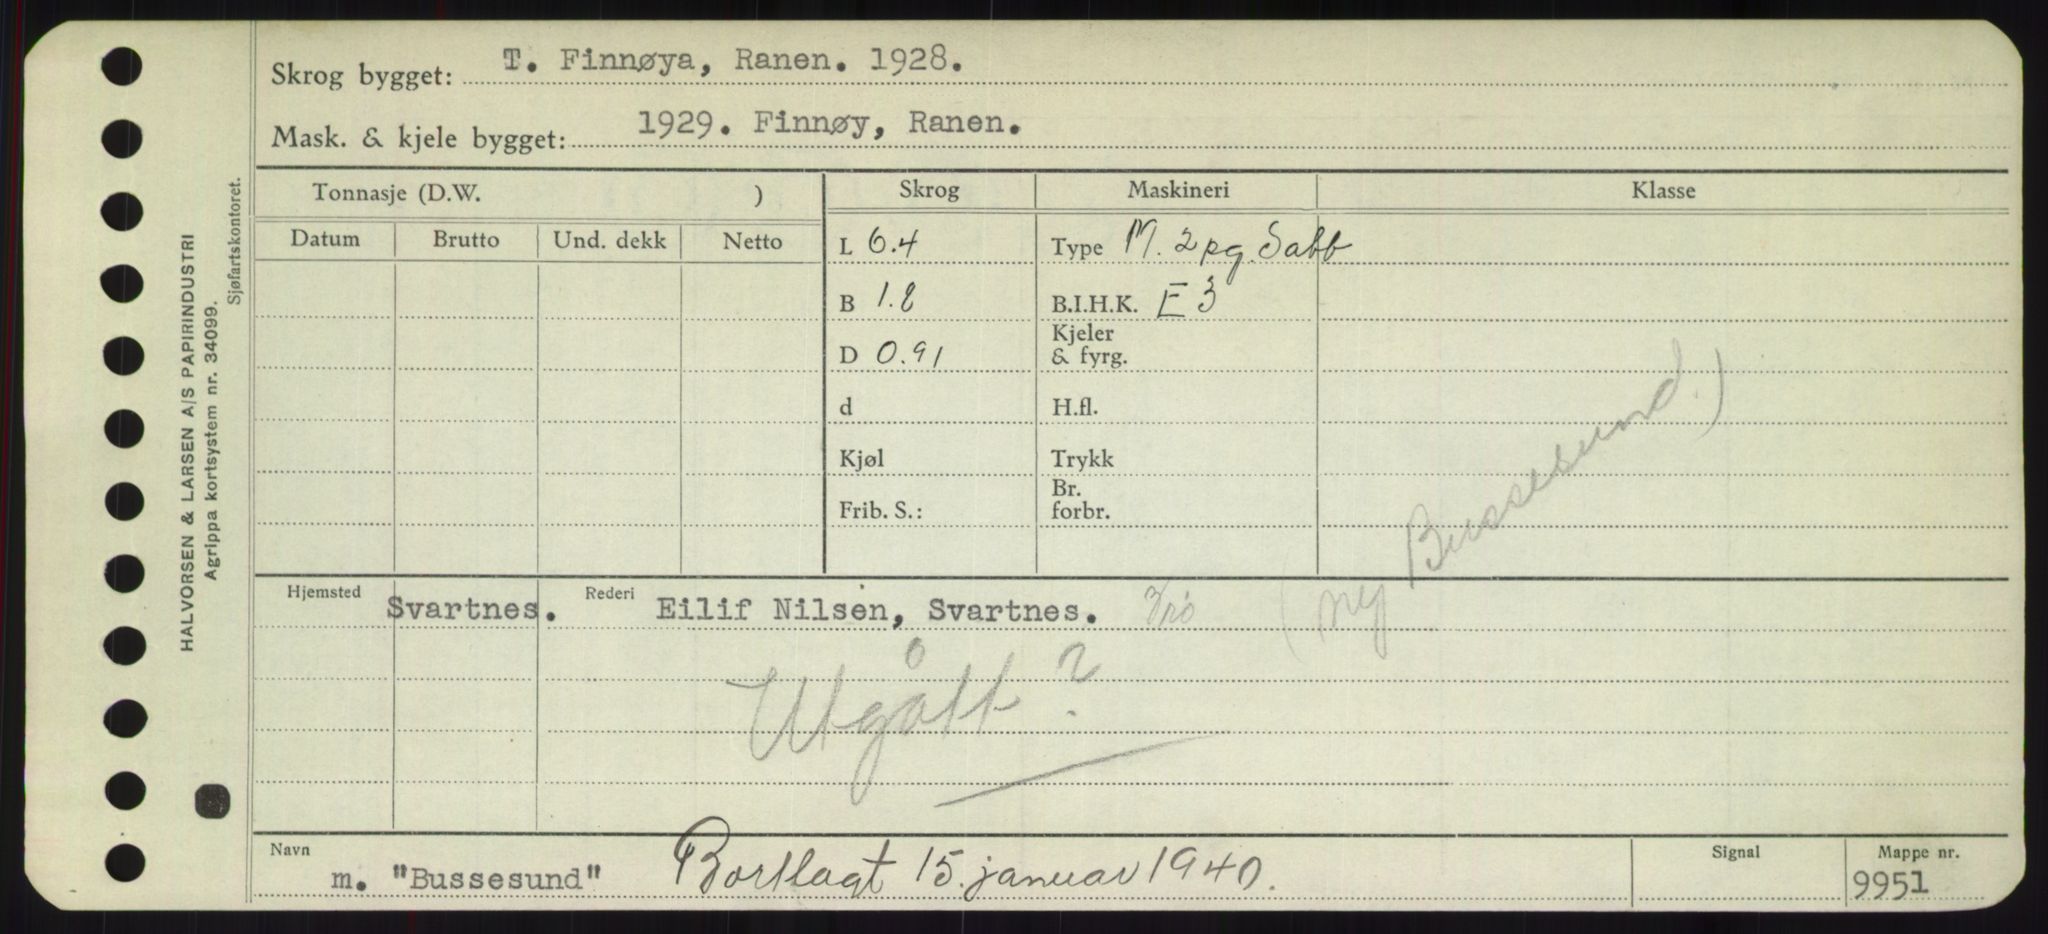 Skrog bygget: T. Finnøya, Ranen. 1928.
Mask. & kjele bygget: 1929. Finnøy, Ranen.
Tonnasje (D.W. )
Skrog
Maskineri
Klasse
Datum
Brutto
Und. dekk
Netto
L 6.4
Type M. 2 pg. Sabb
B 1.8
B.I.H.K. E 3
Kjeler
D 0.91
& fyrg.
d
H.fl.
Kjøl
Trykk
Br.
Frib. S.:
forbr.
(ny Bussesund.)
Hjemsted Svartnes.
Rederi Eilif Nilsen, Svartnes.
Utgått?
Navn
m. "Bussesund" Bortlagt 15. januar 1940.
Signal
Mappe nr.
9951
HALVORSEN & LARSEN A/S PAPIRINDUSTRI
Agrippa kortsystem nr. 34099.
Sjøfartskontoret.